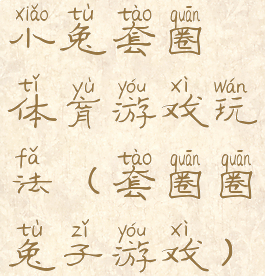 xiǎo tù tào quān
小兔套圈
tǐ yù yóu xì wán
体育游戏玩
fǎ tào quān quān
法（套圈圈
tù zǐ yóu xì
兔子游戏）